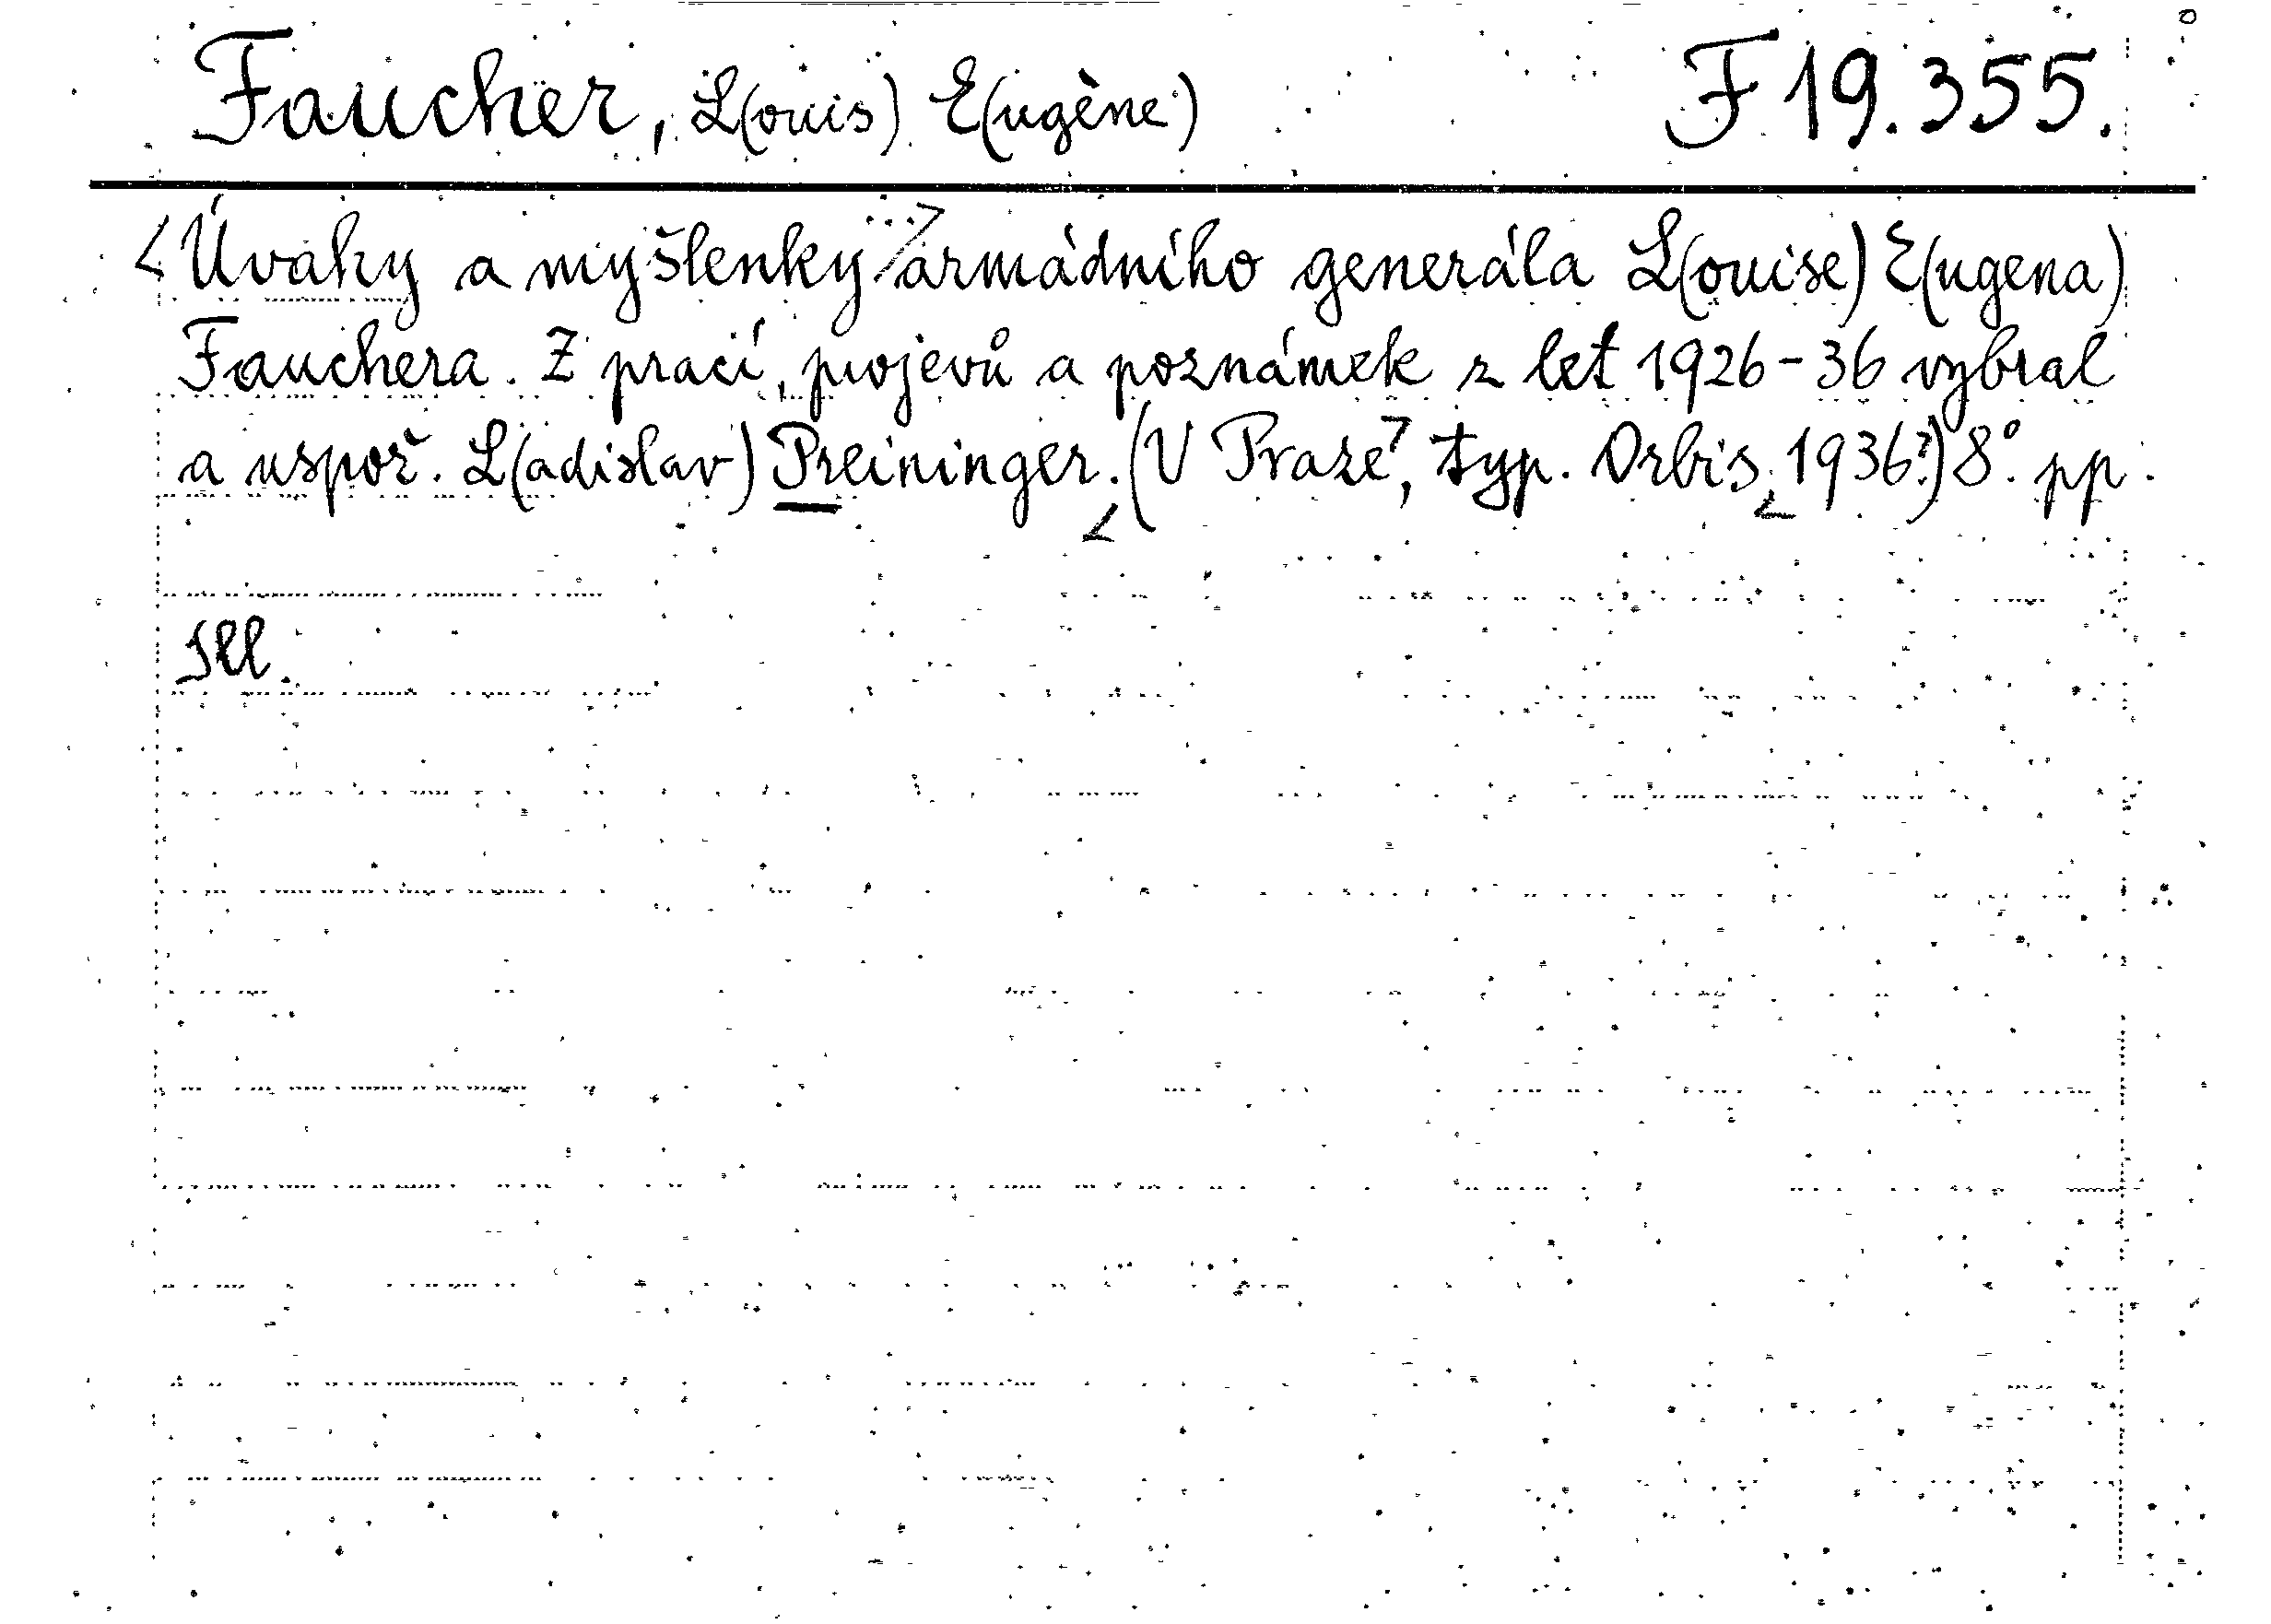 Faucher, L(ouis) E(ugène) F 19.355.
<Úvahy a myšlenky...> armádního generála L(ouise) E(ugena)
Fauchera. Z prací, projevů a poznámek z let 1926-36 vybral
a uspoř. L(adislav) Preininger. <(V Praze>, typ. Orbis, <1936?) 8°. pp.
Ill.